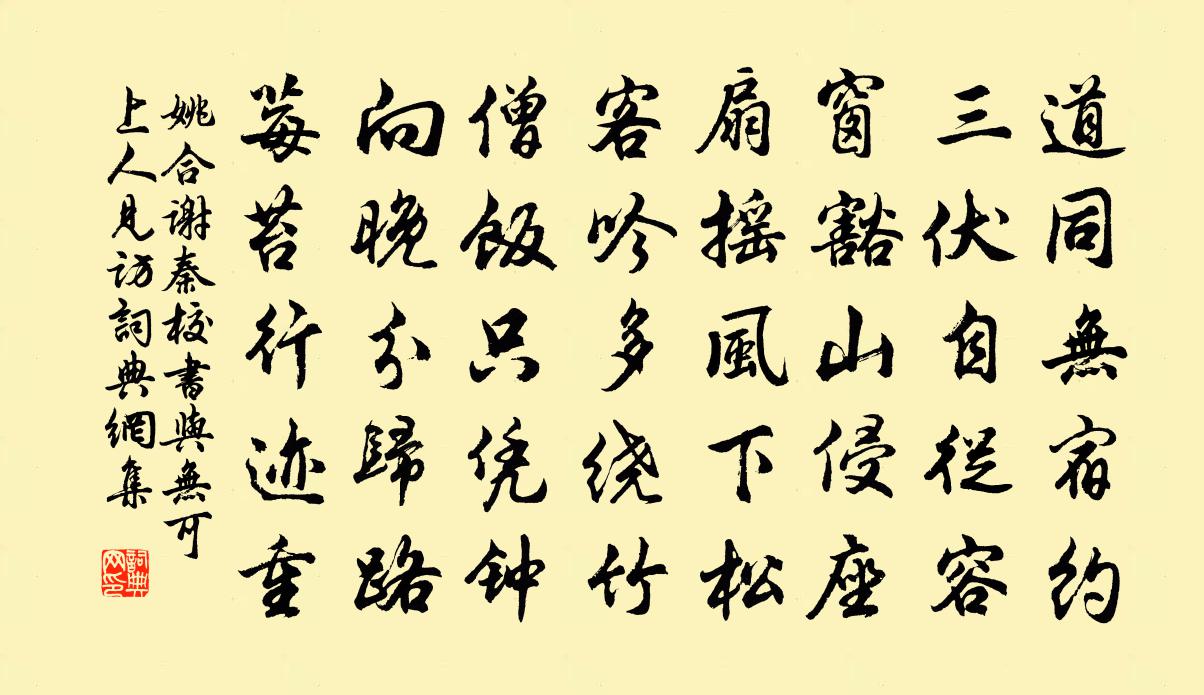 道同無宿約
三伏自從容
窗豁山侵座
扇摇風下松
客吟多绕竹
僧飯只凭钟
向晚分歸路
莓苔行迹重
姚合谢秦校書與無可
上人見访詞典網集
詞典網印